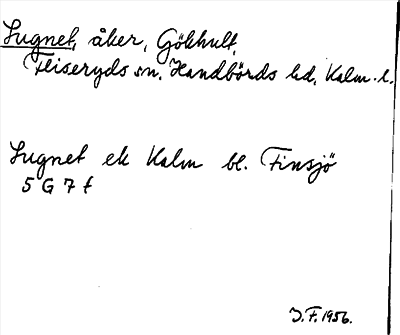 Lugnet, åker, Gökhult,
Fliseryds sn. Handbörds hd, Kalm. l.
Lugnet ek Kalm bl. Finsjö
5 G 7 f
J.F. 1956.